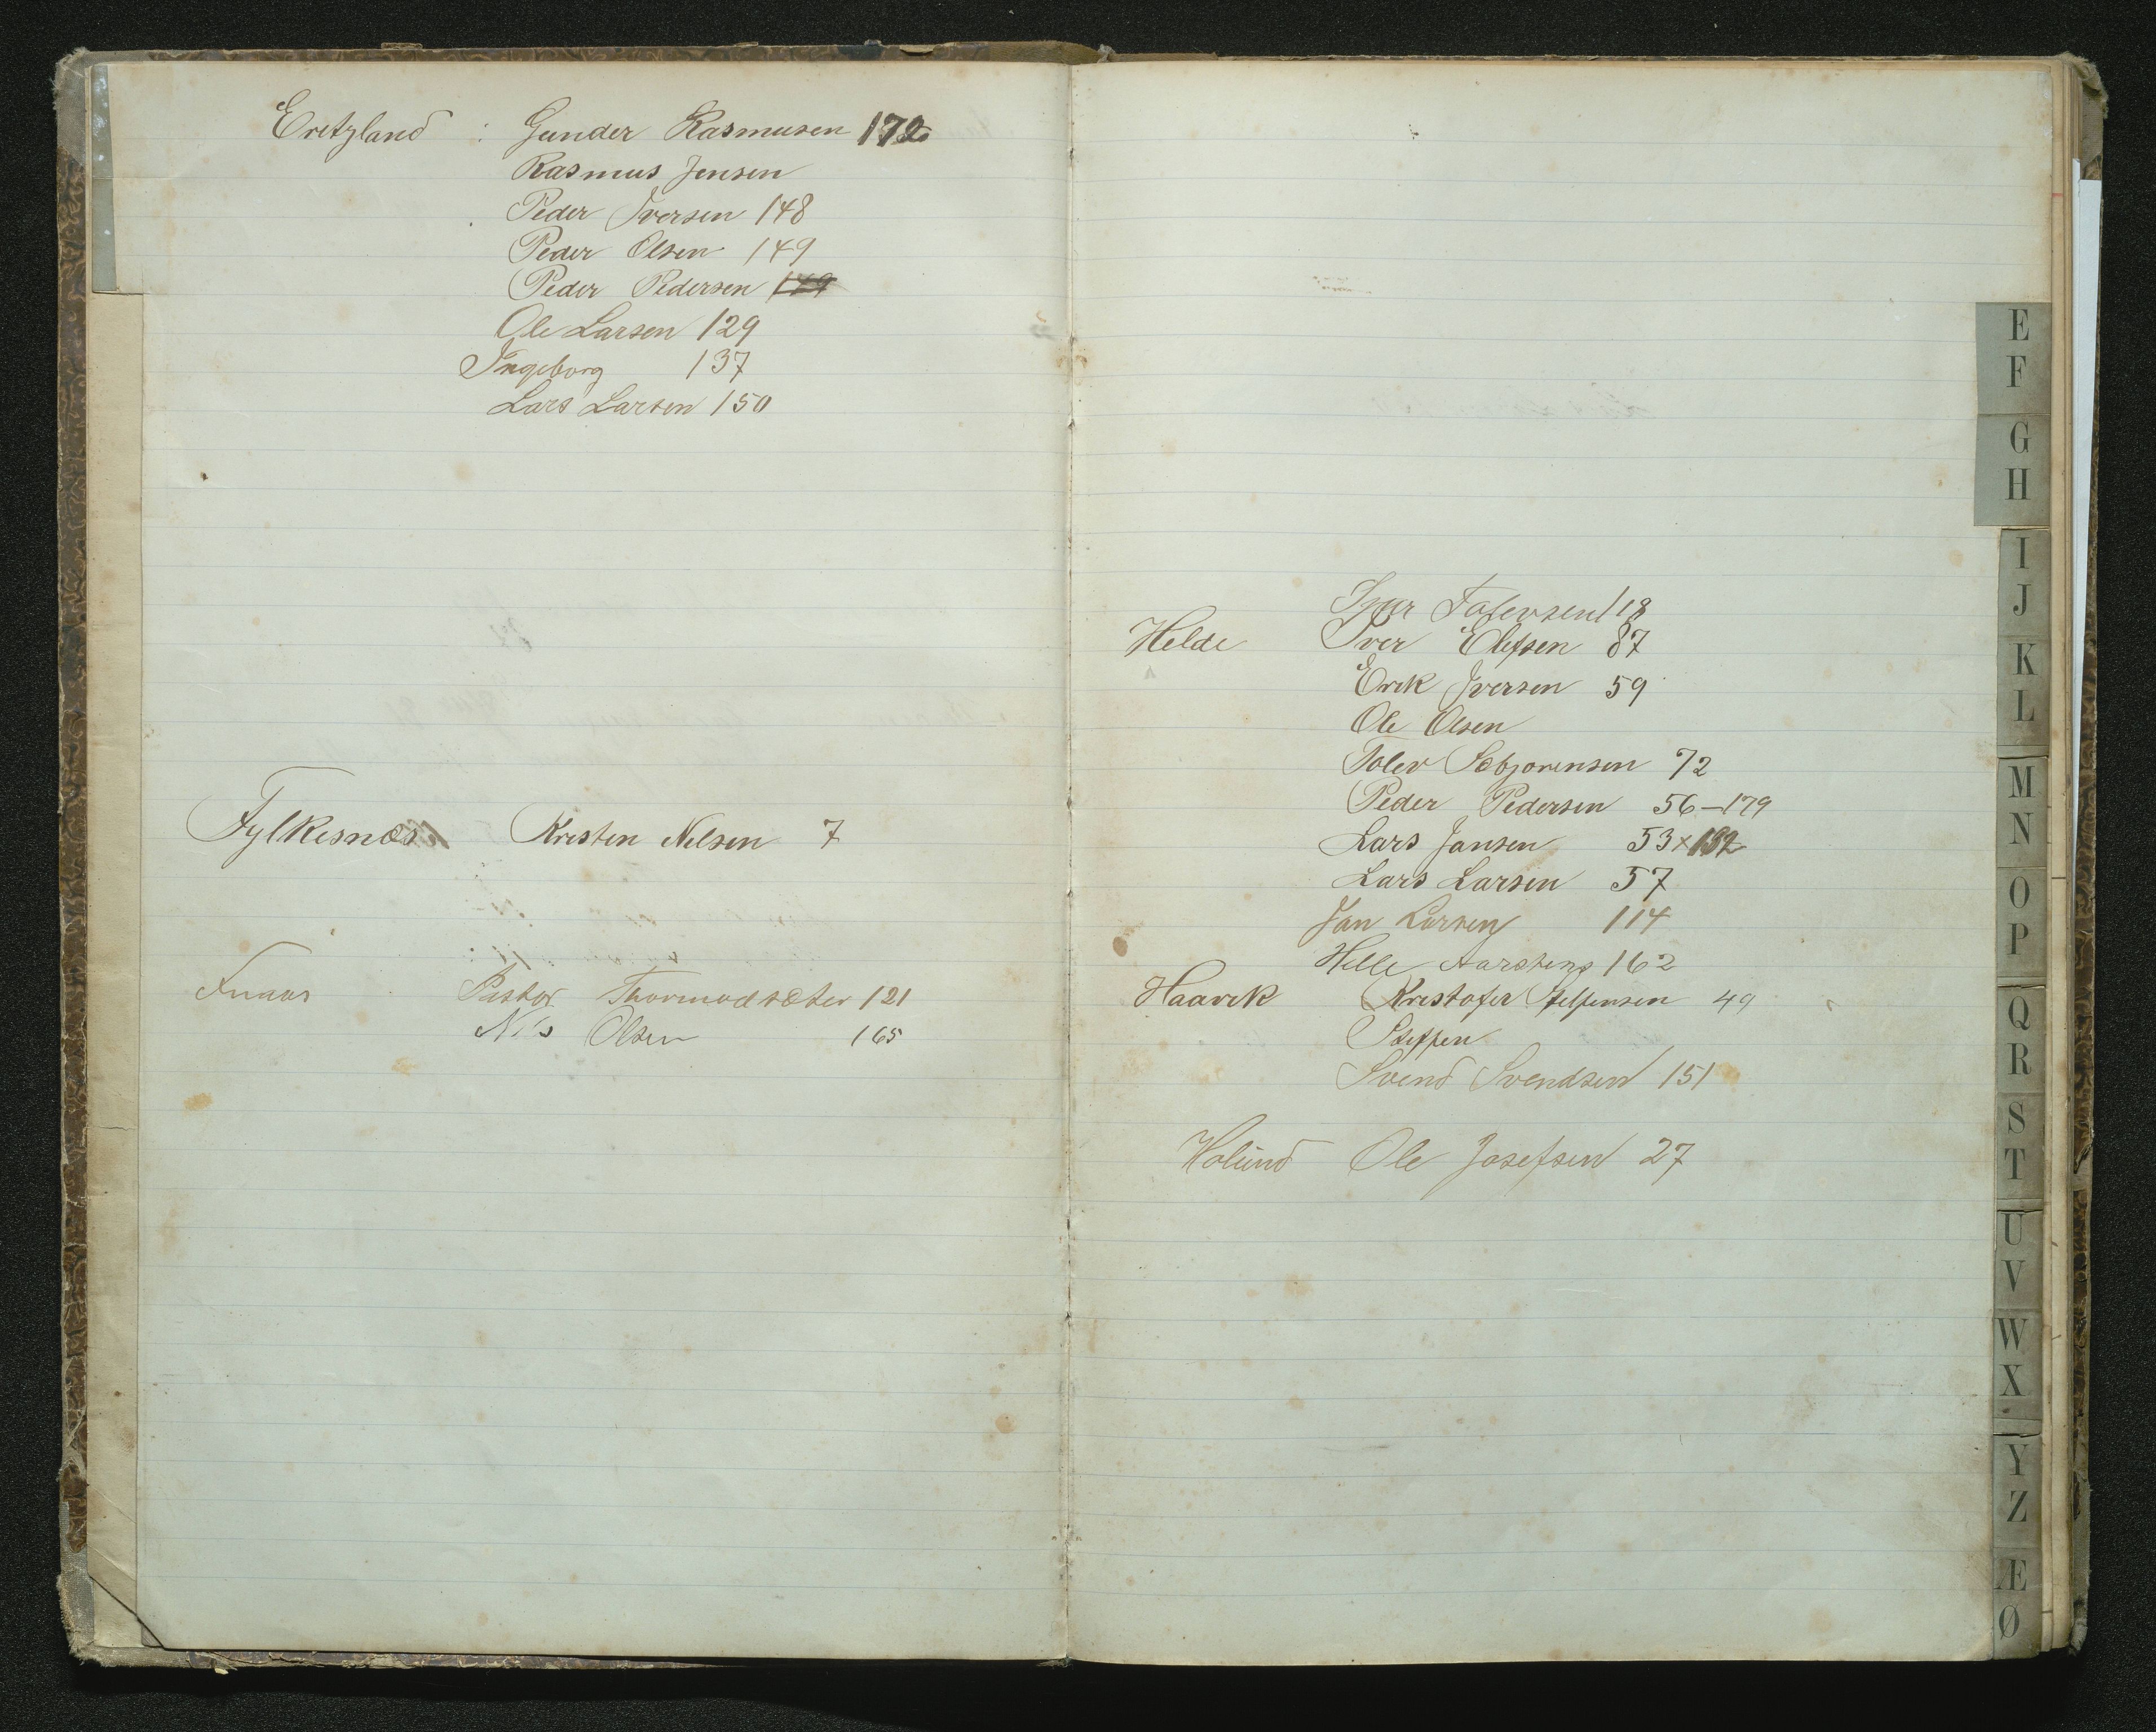 Eretzland : Gunder Rasmusen 172
Rasmus Jensen
Peder Iversen 148
Peder Olsen 149
Peder Pedersen 149
Ole Larsen 129
Ingeborg 137
Lars Larsen 150
Fylkesnæs Kristen Nilsen 7
Fuaas Pastor Thormodsæter 121
Nils Olsen 165
118
Helde Iver Olefsen 87
Erik Iversen 59
Ole Olsen
Tolev Sæbjørensen 72
Peder Pedersen 56-179
Lars Jansen 53 x 192
Lars Larsen 57
Jan Larsen 114
Helle Aarsteng 162
Haavik Kristofer 49
Steffen
Svend Svendsen 151
Holund Ole Josefsen 27
E
F
G
H
I
J
K
L
M
N
O
P
Q
R
S
T
U
V
W
X
Y
Z
Æ
Ø